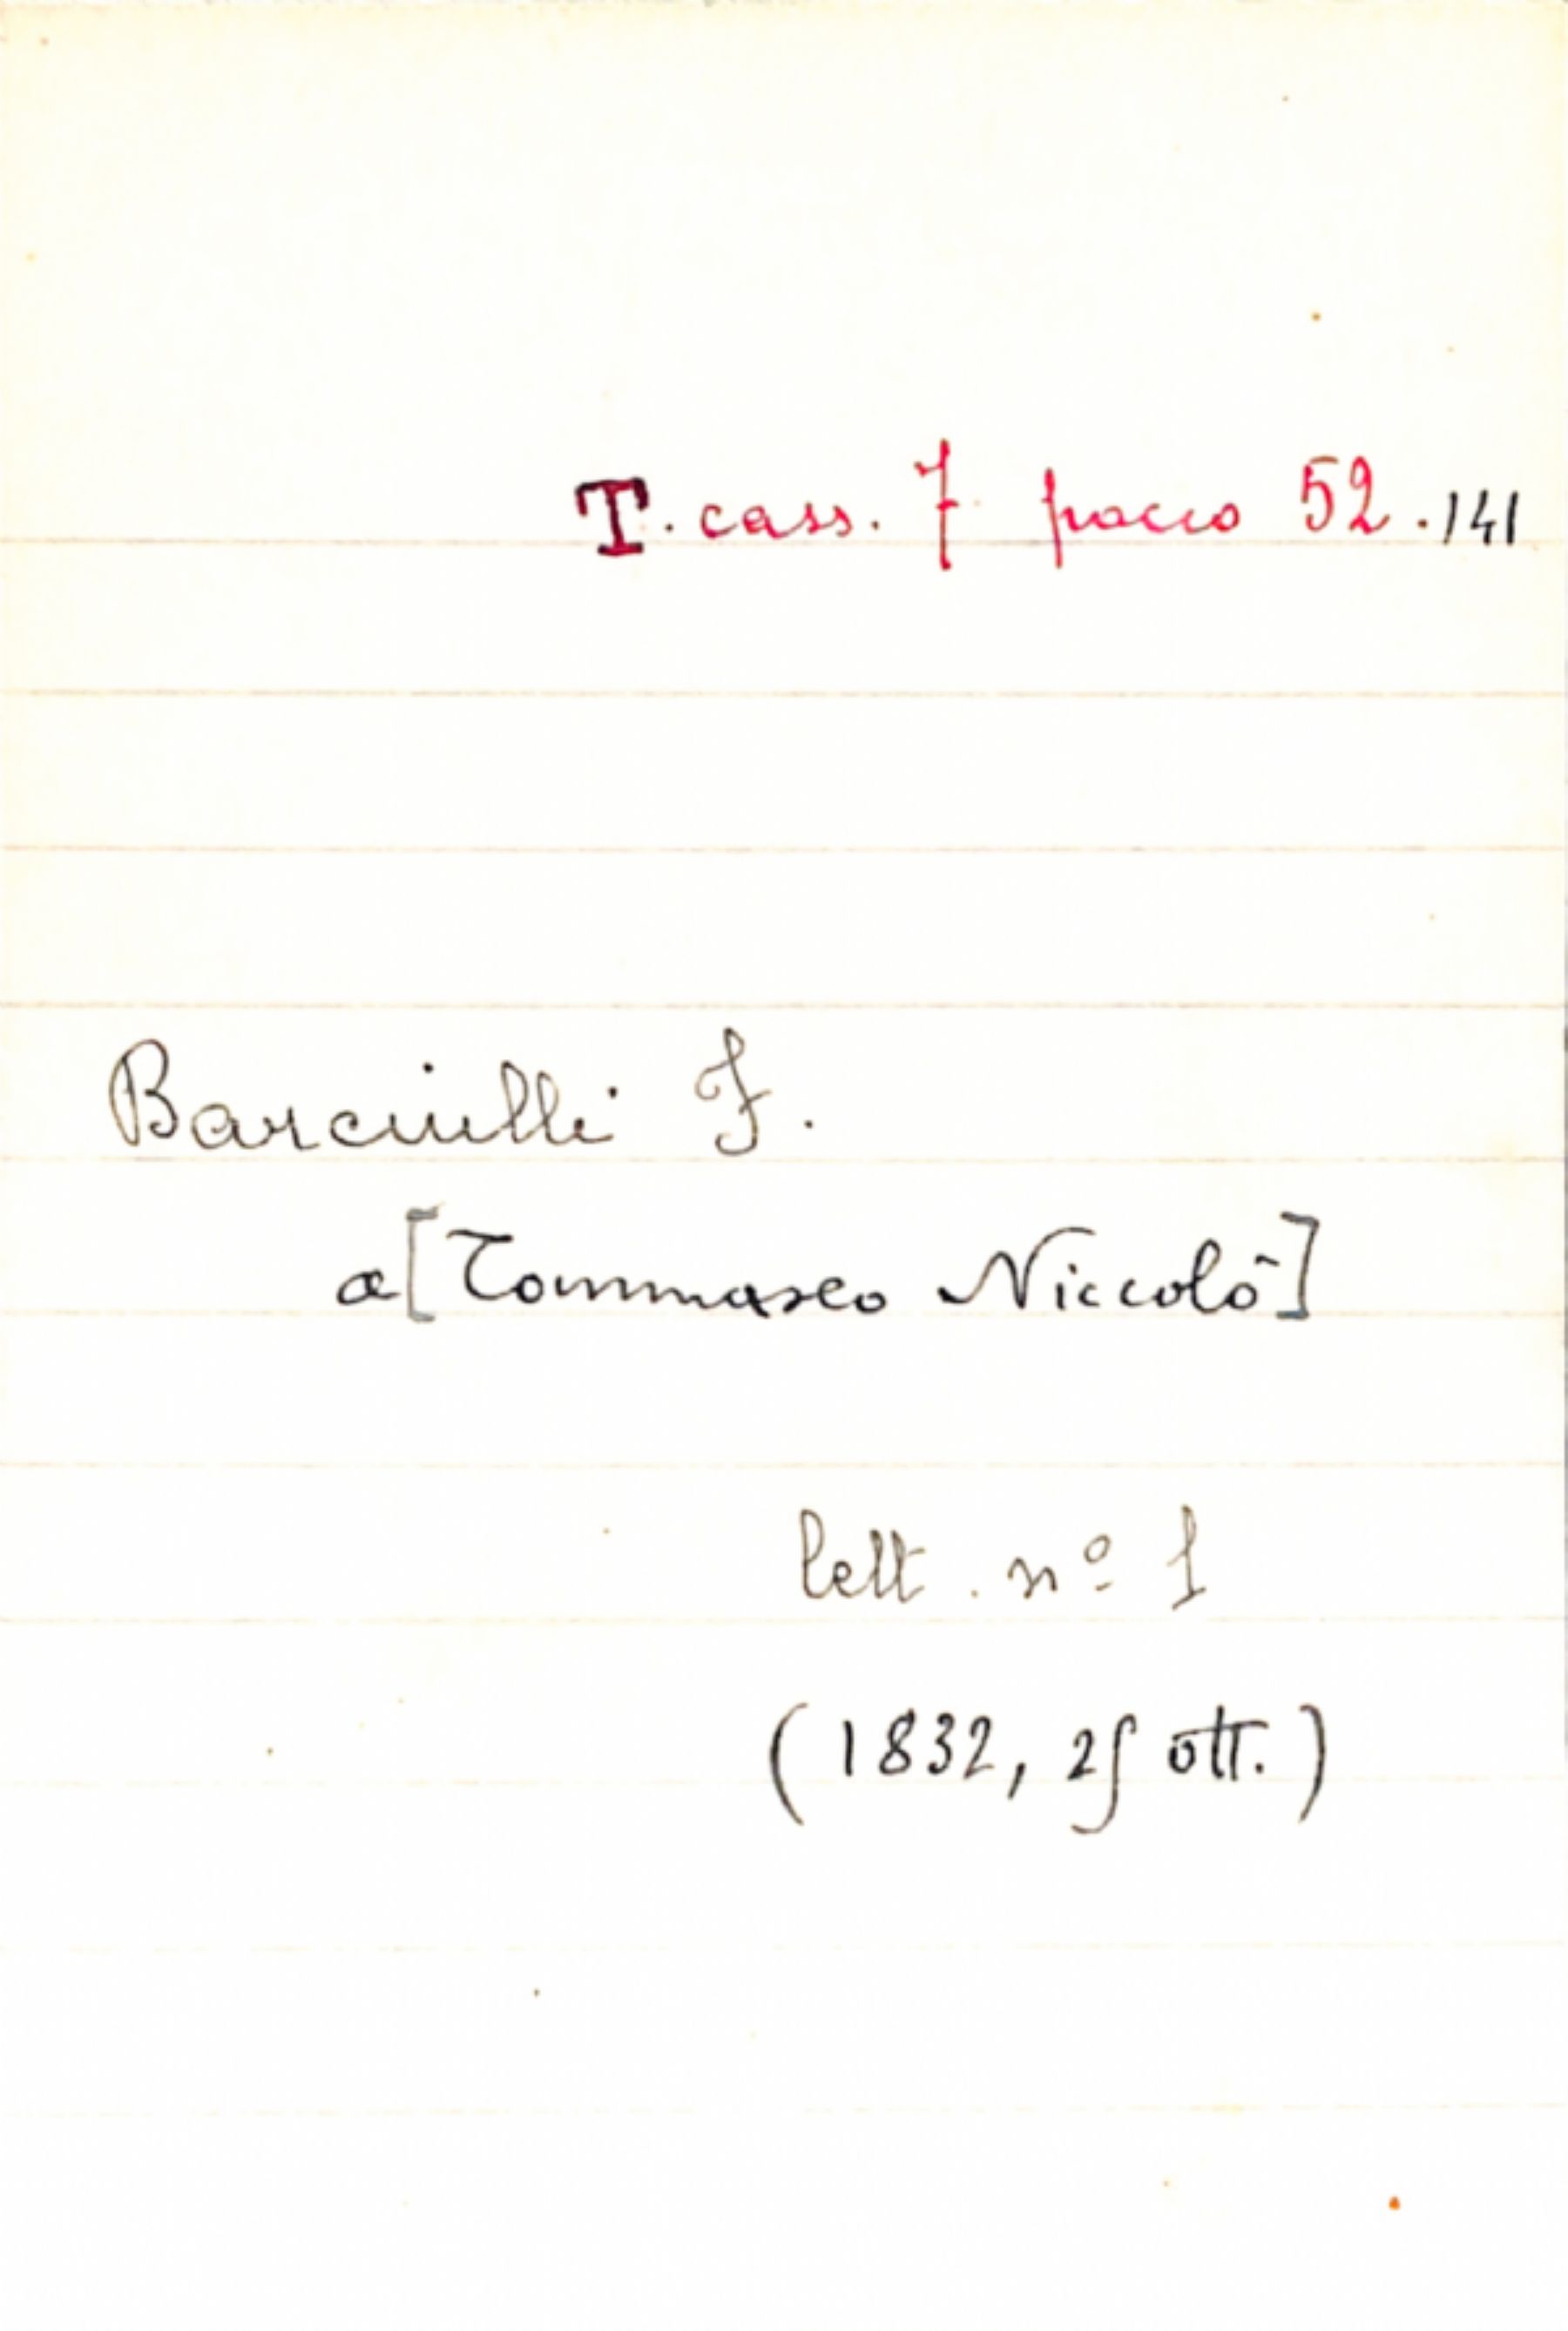 T. cass. 7 pacco 52.141
Barciulli F.
a [Tommaseo Niccolò]
lett. nº 1
(1832, 25 ott.)